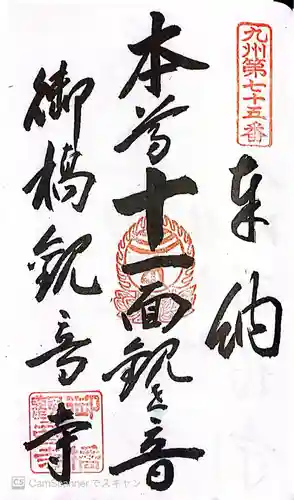 九州第七十五番
奉納
本尊十一面観世音
御橋観音寺
CS CamScannerでスキャン